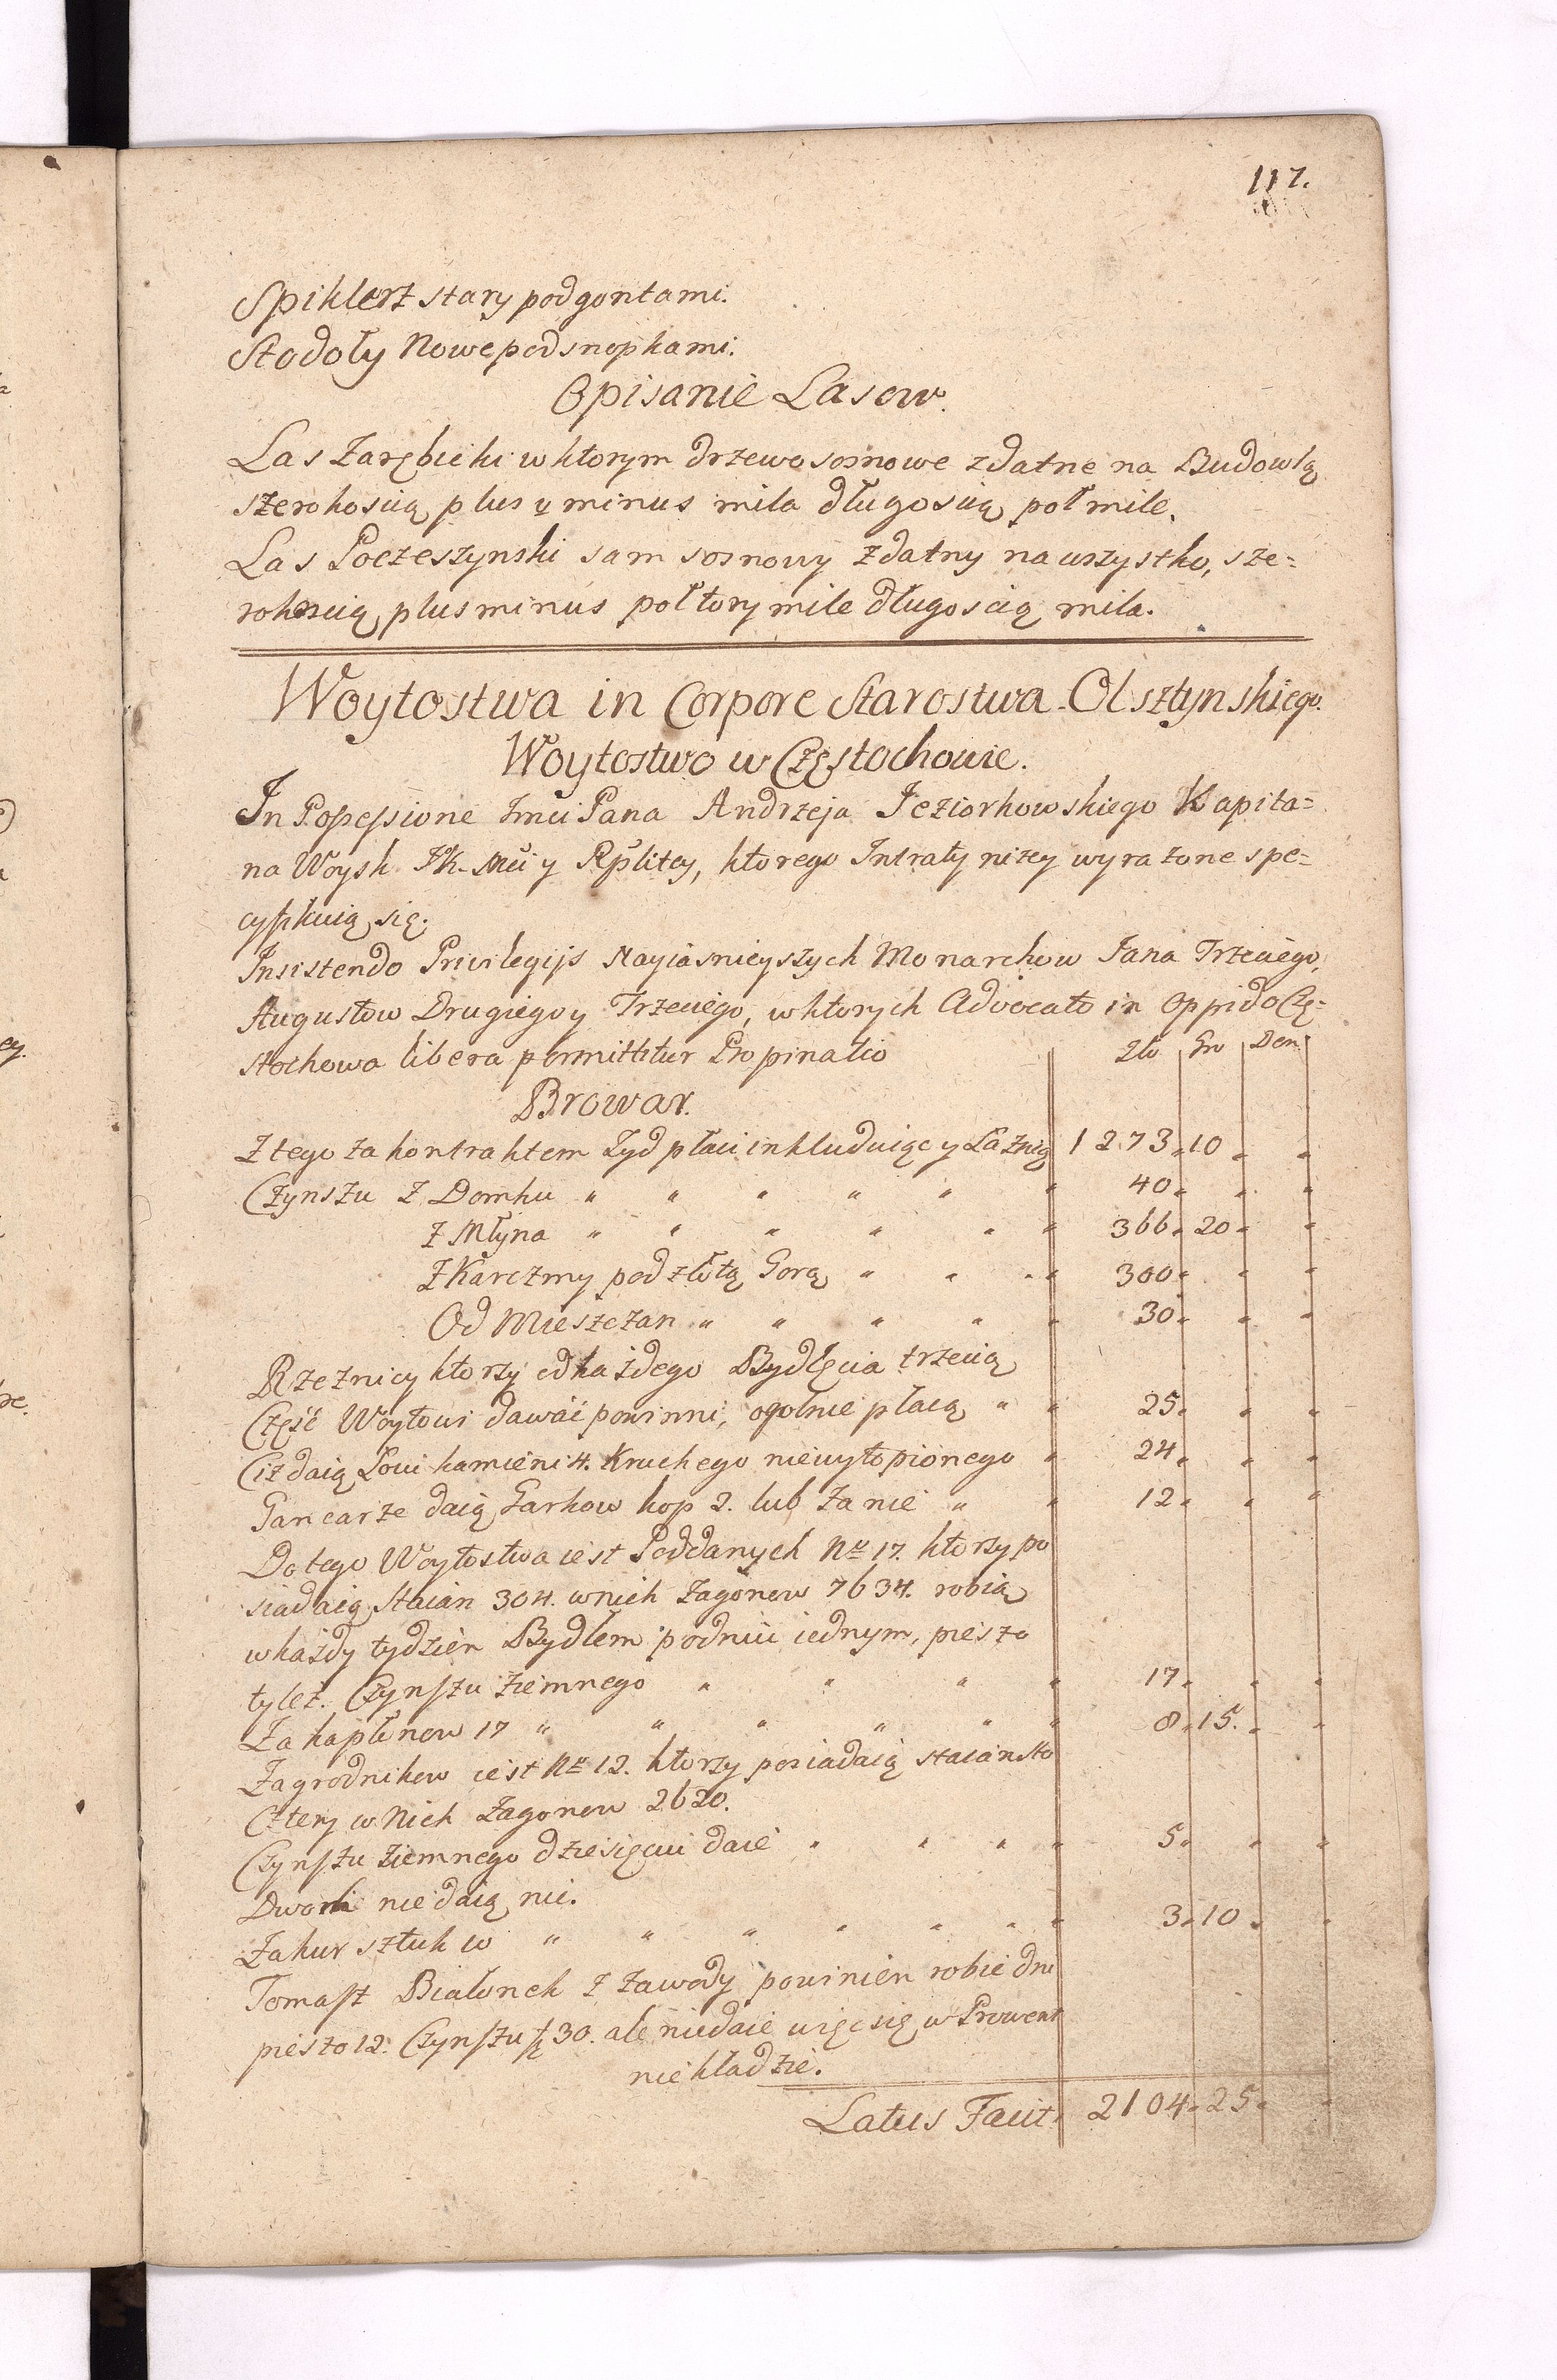 117.
Spihlerz stary pod gontami.
Stodoły Nowe pod snopkami.
Opisanie Lasow.
Las Zarębicki w ktorym drzewo sosnowe zdatne na Budowlą
szerokoscią plus v minus mila długoscią poł mile.
Las Poczeszynski sam sosnowy zdatny na wszystko, sze=
rokoscią plus minus połtory mile długoscią mila.
Woytostwa in Corpore Starostwa Olsztynskiego.
Woytostwo w Częstochowie.
In Possessione Jmci Pana Andrzeja Jeziorkowskiego Kapita=
na Woysk JK. Mci y Rplitey, ktorego Intraty nizey wyrazone spe=
cyfikuią się.
Insistendo Privilegijs Nayiasnieyszych Monarchow Jana Trzeciego,
Augustow Drugiego y Trzeciego, w ktorych Advocato in Oppido Czę=
stochowa libera permittitur Propinatio
Zło Gro Den
Browar.
Z tego za kontraktem Zyd płaci inkluduiąc y Łaznią 1273 " 10 " "
Czynszu z Domku " " " " " " 40 " " "
z Młyna " " " " " " 366 " 20 " "
z Karczmy pod złotą Gorą " " " " 300 " " "
Od Mieszczan " " " " " 30 " " "
Rzeznicy ktorzy od każdego Bydlęcia trzecią
Część Woytowi dawać powinni, ogolnie płacą " " 25 " " "
Ciz daią Łoiu kamieni 4. Kruchego niewytopionego " 24 " " "
Garncarze daią Garkow kop 2. lub za nie " " 12 " " "
Do tego Woytostwa iest Poddanych Nro 17. ktorzy po
siadaią Staian 304. w nich Zagonow 7634. robią
w każdy tydzień Bydłem po dniu iednym, pieszo
tylez. Czynszu ziemnego " " " " 17 " " "
Za kapłonow 17 " " " " " " 8 " 15. " "
Zagrodnikow iest Nro 12. ktorzy posiadaią staian sto
Cztery w Nich Zagonow 2620.
Czynszu ziemnego dziesięciu daie " " " " 5 " " "
Dwoch nie daią nic.
Za kur sztuk 10 " " " " " " 3 " 10 " "
Tomasz Białonch z Zawody powinien robic dni
pieszo 12. Czynszu fz 30. ale niedaie więc się w Prowent
nie kładzie.
Latus Facit 2104 " 25 " "